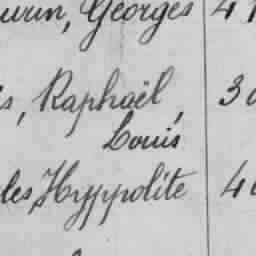 urin, Georges 4
s, Raphaël, 30
Louis
les, Hyppolite 40